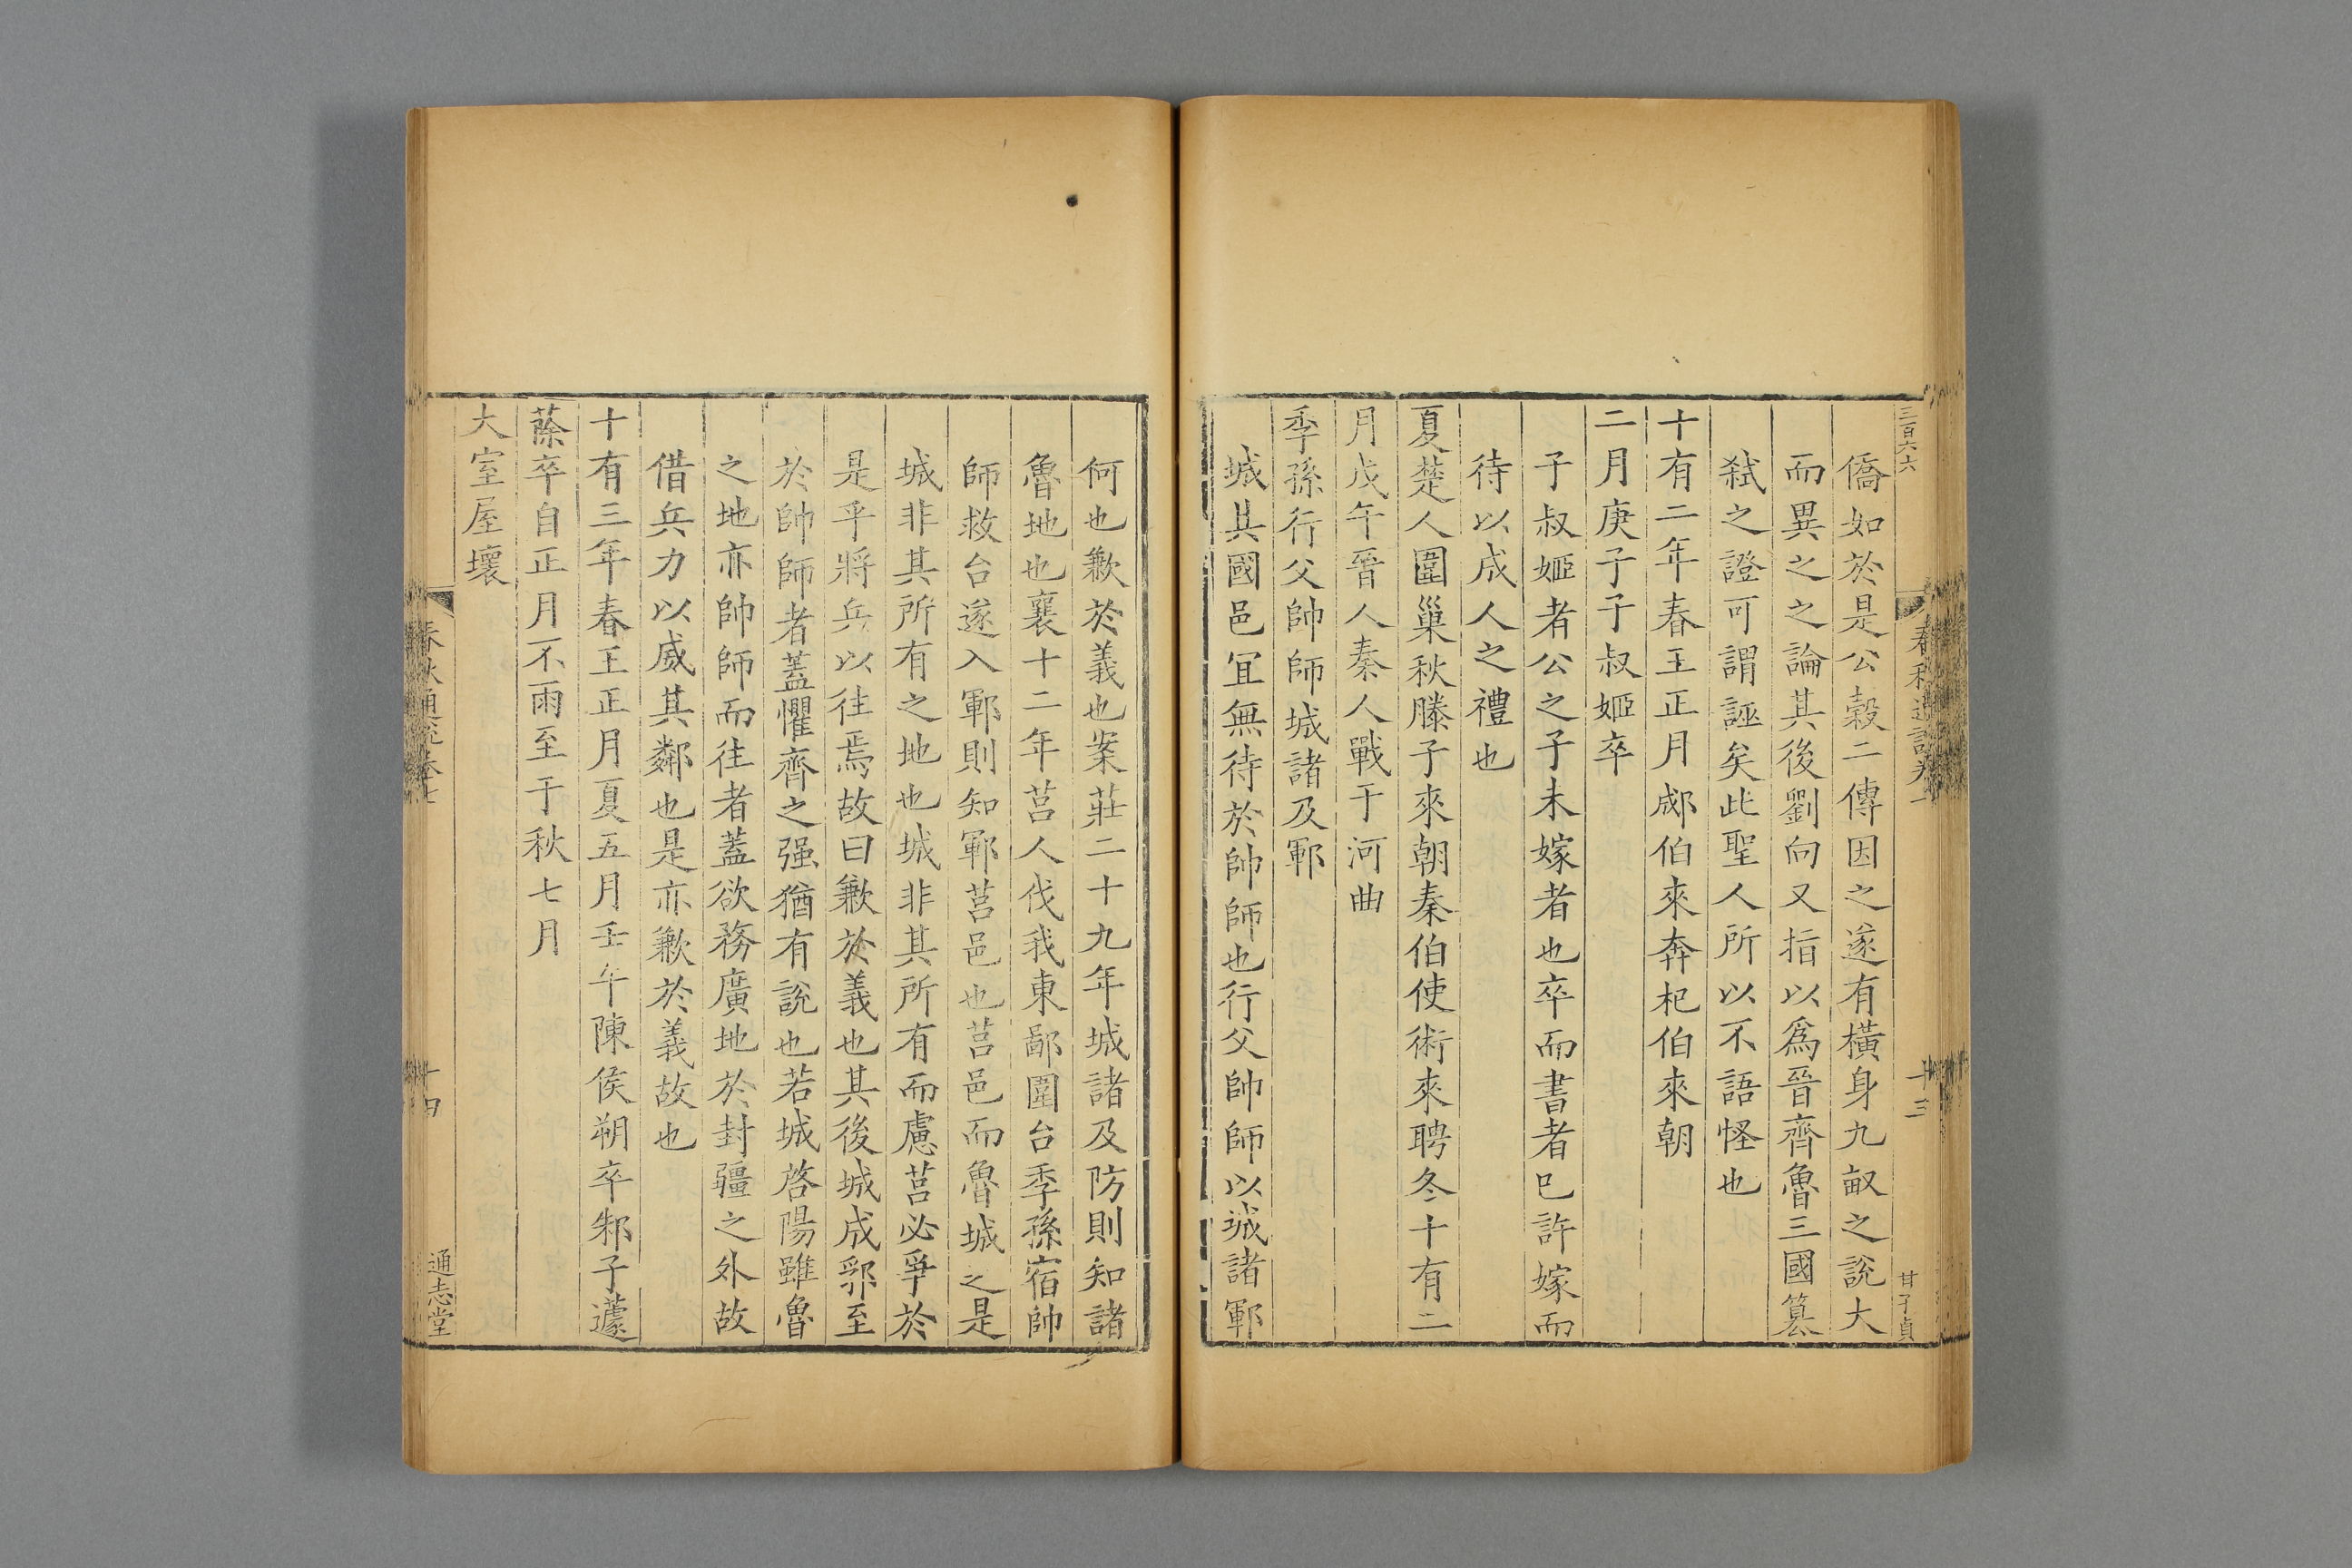 三百六六
春秋通說卷
十三
甘子貞
僑如於是公穀二傳因之遂有橫身九畝之說大
而異之之論其後劉向又指以爲晉齊魯三國篡
弑之證可謂誣矣此聖人所以不語怪也
十有二年春王正月郕伯來奔杞伯來朝
二月庚子子叔姬卒
子叔姬者公之子未嫁者也卒而書者已許嫁而
待以成人之禮也
夏楚人圍巢秋滕子來朝秦伯使術來聘冬十有二
月戊午晉人秦人戰于河曲
季孫行父帥師城諸及鄆
城其國邑宜無待於帥師也行父帥師以城諸鄆
何也歉於義也案莊二十九年城諸及防則知諸
魯地也襄十二年莒人伐我東鄙圍台季孫宿帥
師救台遂入鄆則知鄆莒邑也莒邑而魯城之是
城非其所有之地也城非其所有而慮莒必爭於
是乎將兵以往焉故曰歉於義也其後城成郛至
於帥師者蓋懼齊之强猶有說也若城啓陽雖魯
之地亦帥師而往者蓋欲務廣地於封疆之外故
借兵力以威其鄰也是亦歉於義故也
十有三年春王正月夏五月壬午陳侯朔卒邾子蘧
蒢卒自正月不雨至于秋七月
大室屋壞
春秋通說卷七
十四
通志堂